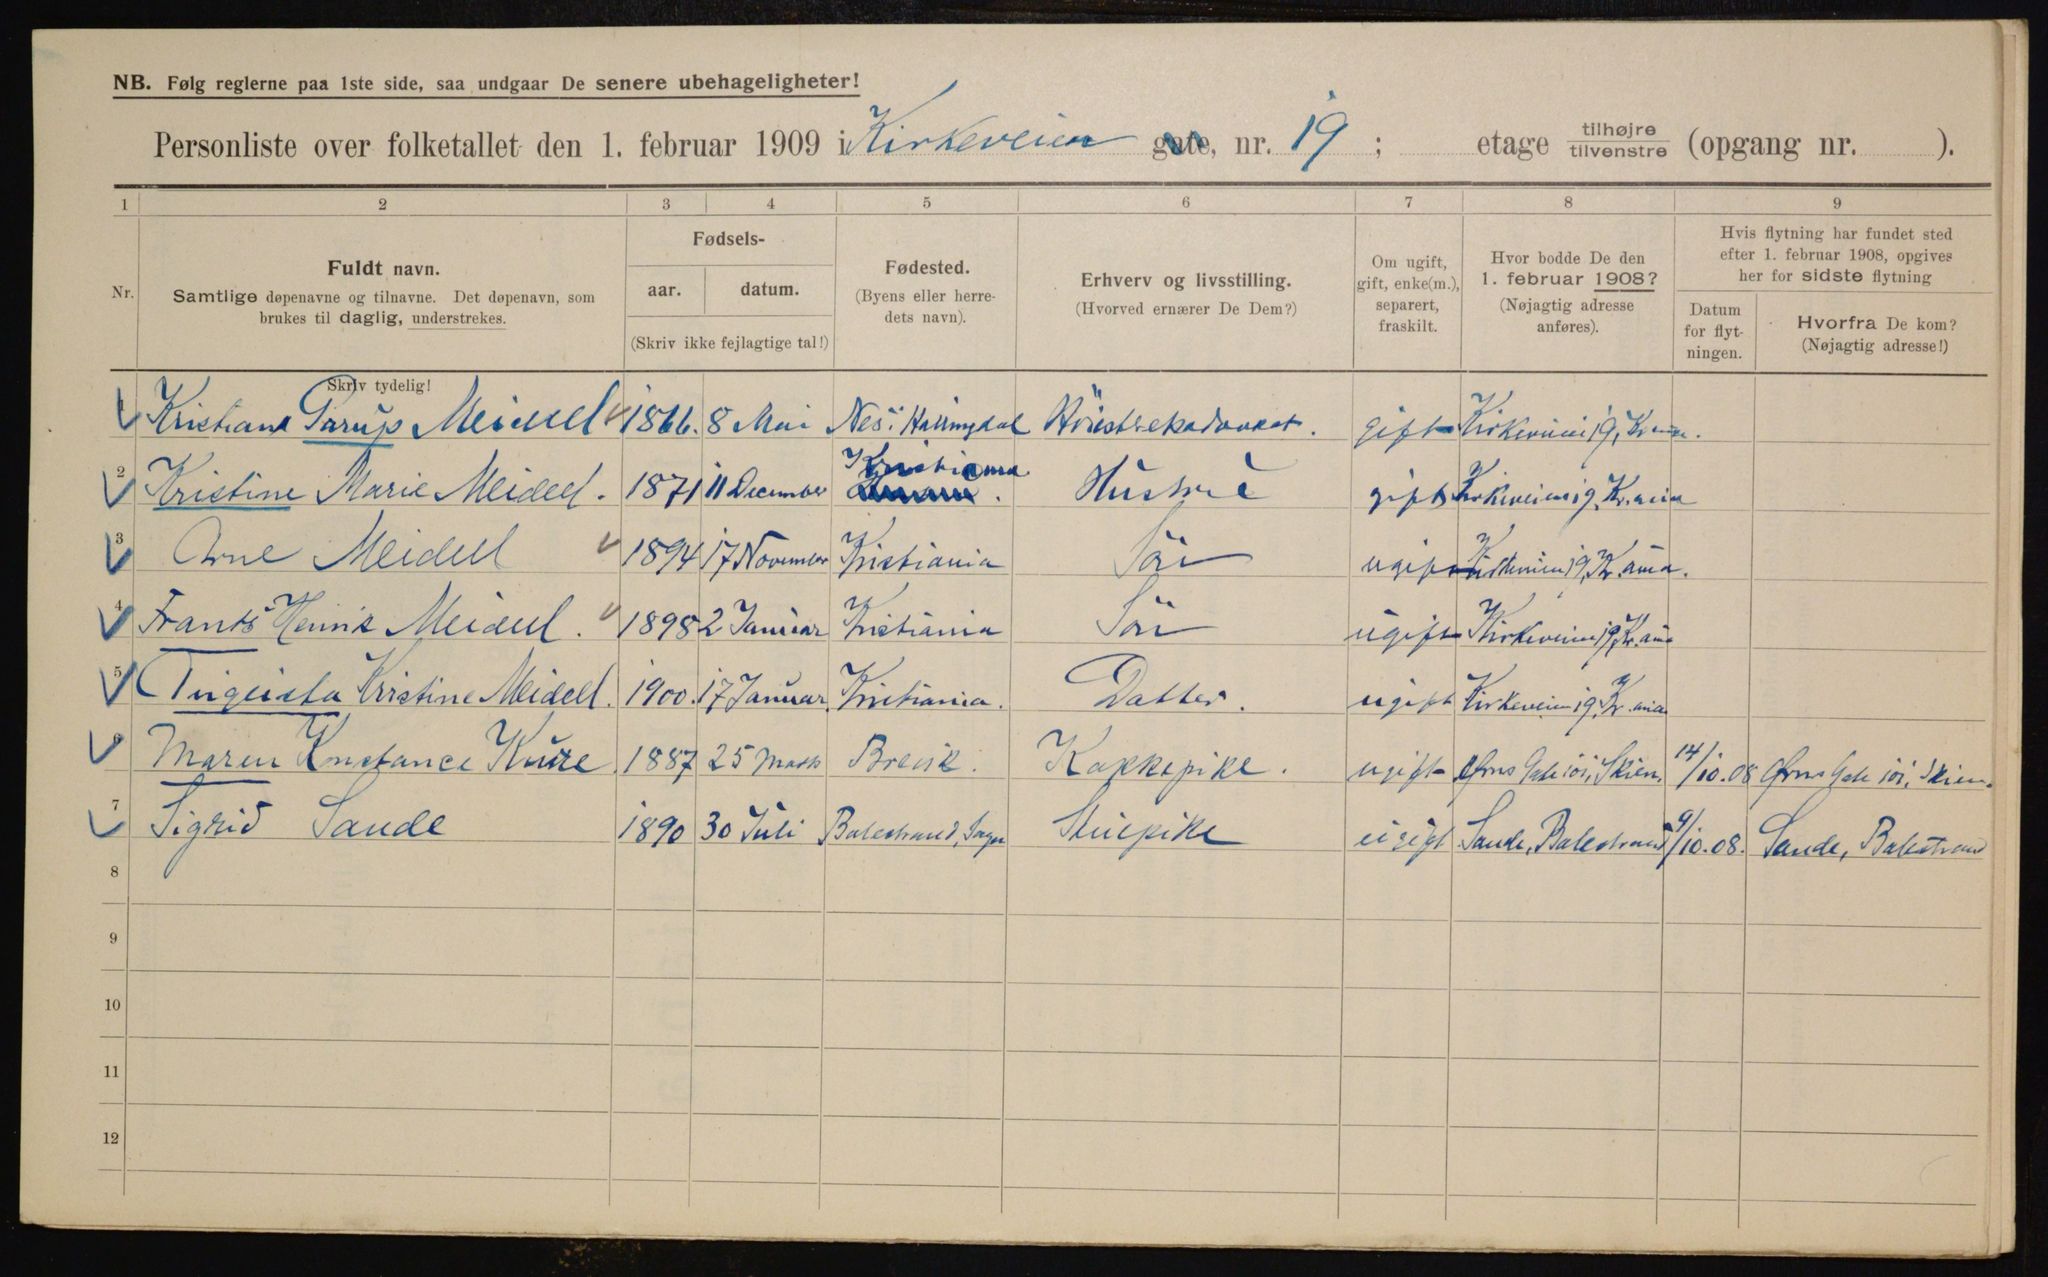 NB. Følg reglerne paa 1ste side, saa undgaar De senere ubehageligheter!
Personliste over folketallet den 1. februar 1909 i Kirkeveien gate, nr. 19 ; etage tilhøjre tilvenstre (opgang nr. ).
1 2 3 4 5 6 7 8 9
Nr.
Fuldt navn.
Samtlige døpenavne og tilnavne. Det døpenavn, som
brukes til daglig, understrekes.
Skriv tydelig!
Fødsels-
aar. datum.
(Skriv ikke fejlagtige tal!)
Fødested.
(Byens eller herre-
dets navn).
Erhverv og livsstilling.
(Hvorved ernærer De Dem?)
Om ugift,
gift, enke(m.),
separert,
fraskilt.
Hvor bodde De den
1. februar 1908?
(Nøjagtig adresse
anføres).
Hvis flytning har fundet sted
efter 1. februar 1908, opgives
her for sidste flytning
Datum
for flyt-
ningen.
Hvorfra De kom?
(Nøjagtig adresse!)
Kristian Parup Meidell 1866. 8 Mai Nes i Hallingdal Høiesteretsadvokat. gift Kirkeveien 19, Kr.ania.
2 Kristine Marie Meidell. 1871 11 December Kristiania. Hustru gift Kirkeveien 19, Kr.ania
3 Arne Meidell 1894 17 November Kristiania Sön ugift Kirkeveien 19, Kr.ania.
4 Frants Henrik Meidell. 1898 2 Januar Kristiania Sön ugift Kirkeveien 19, Kr.ania
5 Augusta Kristine Meidell. 1900. 17 Januar. Kristiania. Datter. ugift Kirkeveien 19, Kr.ania
6 Maren Konstance Kure. 1887 25 Mars Brevik. Kokkepike. ugift Ørns Gate 101, Skien. 14/10.08 Ørns Gate 101, Skien.
7 Sigrid Sande 1890 30 Juli Balestrand, Sogn Stuepike ugift Sande, Balestrand 9/10.08. Sande, Balestrand
8
9
10
11
12